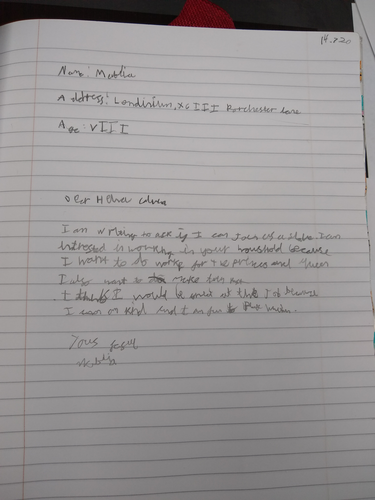 14.7.20
Name: Metlia
Address: Londinium, XCIII Porchester lane
Age: VIII
Dear H
I am writing to ask if I can Join as a slave. I am
intrested in working in your houshold because
I want to do work for the princess and Queen
I also want to make
I think I would be great at this Job because
I am kind and I am fun to
Yous
Metlia